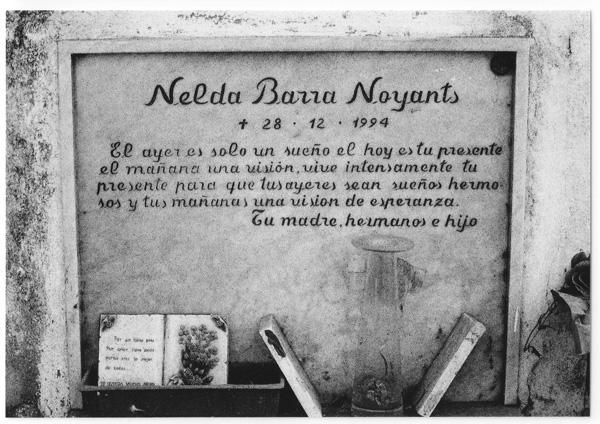 Nelda Barra Noyants
✝ 28 · 12 · 1994
El ayer es solo un sueño el hoy es tu presente
el mañana una visión, vive intensamente tu
presente para que tus ayeres sean sueños hermo-
sos y tus mañanas una vision de esperanza.
Tu madre, hermanos e hijo